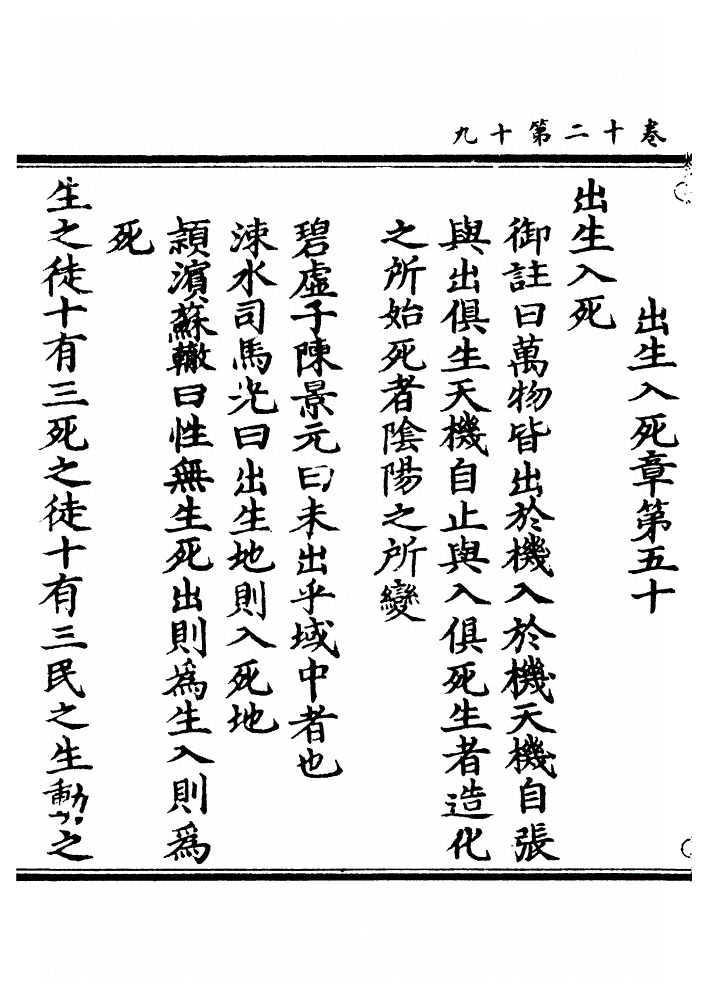 卷十二第十九
出生入死章第五十
出生入死
御註曰萬物皆出於機入於機天機自張
與出俱生天機自止與入俱死生者造化
之所始死者陰陽之所變
碧虛子陳景元曰未出乎域中者也
涑水司馬光曰出生地則入死地
頴濱蘇轍曰性無生死出則為生入則為
死
生之徒十有三死之徒十有三民之生動之